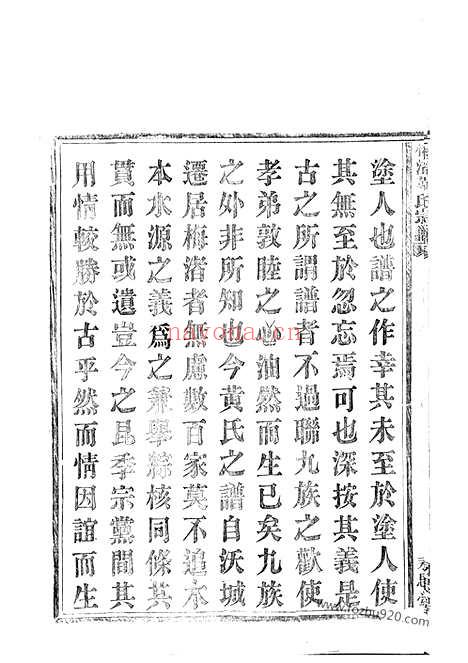 塗人也譜之作幸其未至於塗人使
其無至於忽忘焉可也深按其義是
古之所謂譜者不過聯九族之歡使
孝弟敦睦之心油然而生已矣九族
之外非所知也今黄氏之譜自沃城
遷居梅渚者無慮數百家莫不追木
本水源之義爲之兼舉綜核同條共
貫而無或遺豈今之昆季宗黨間其
用情較勝於古乎然而情因誼而生
nayona.cn
www.fozhu920.com